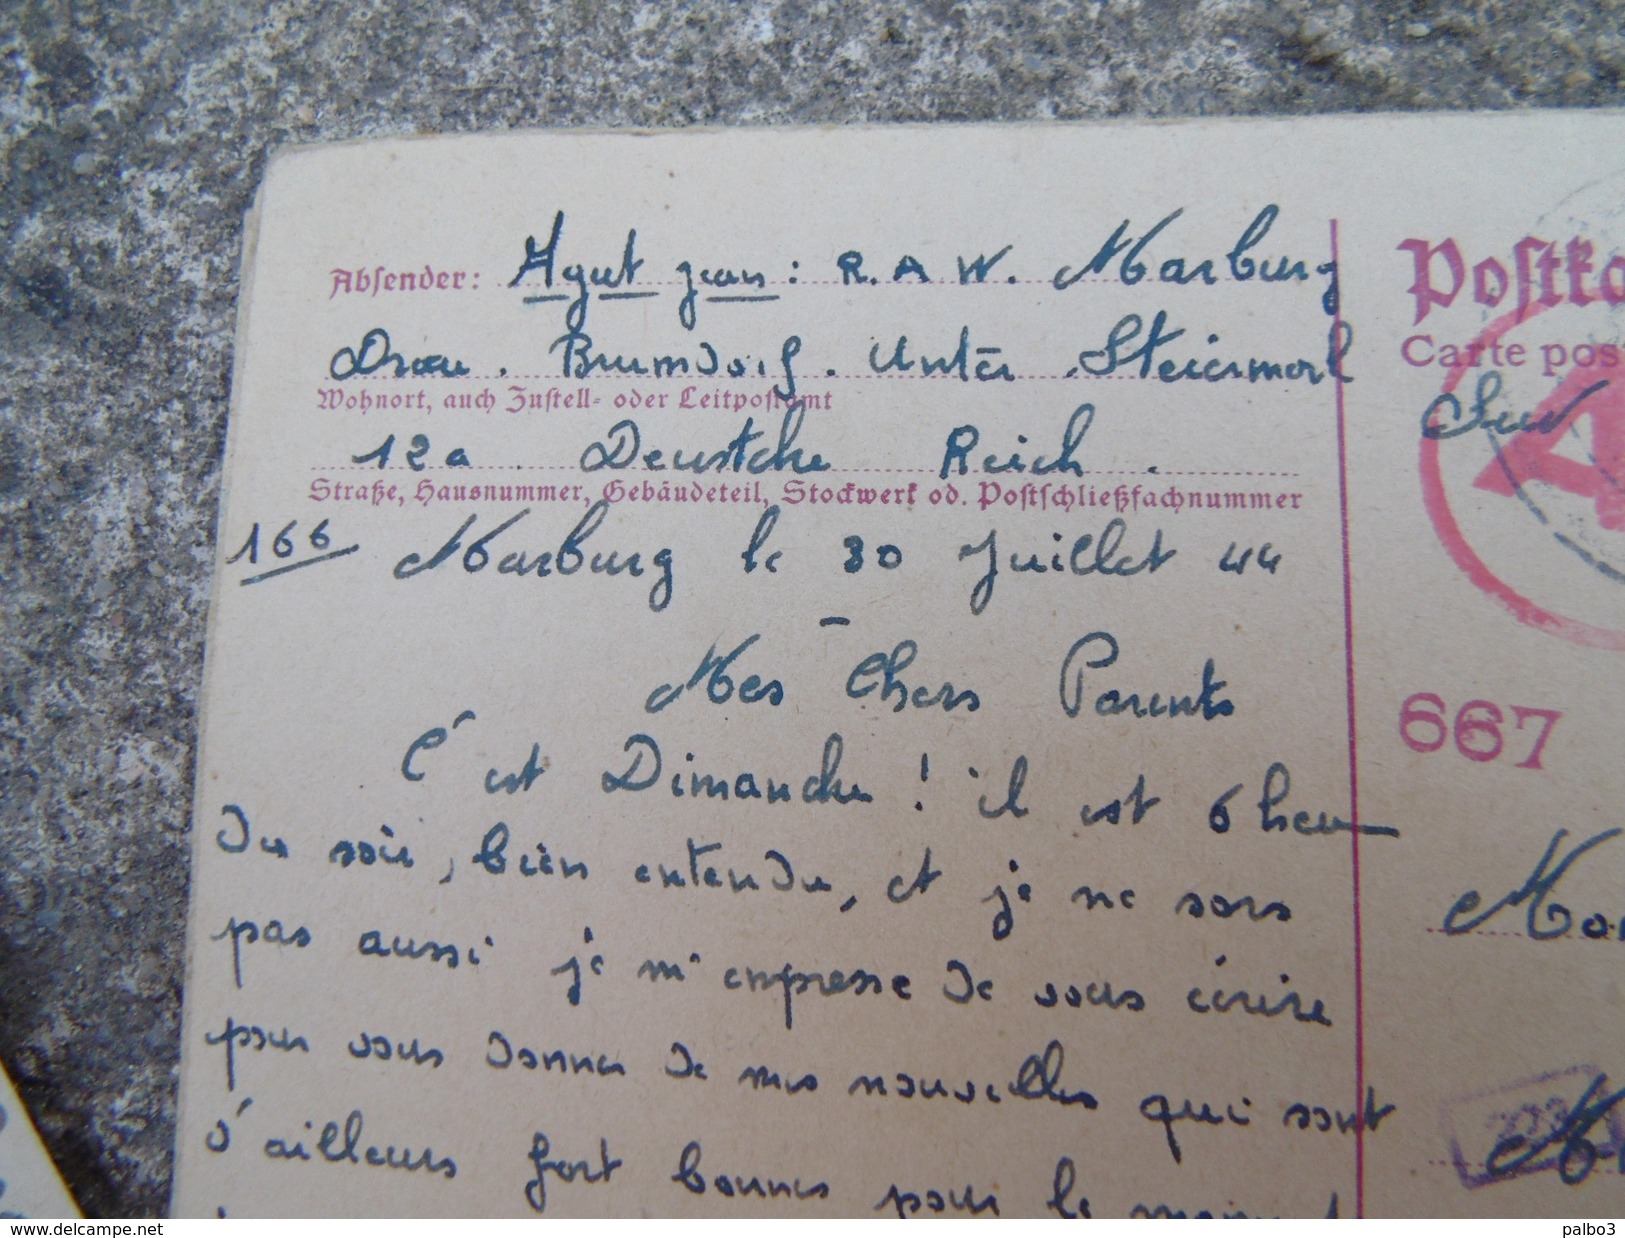 Absender: Agut Jean : R. A W. Marburg
Drau . Brumdorf . Unter . Steiermark
Wohnort, auch Zustell- oder Leitpostamt
12a . Deustche Reich .
Straße, Hausnummer, Gebäudeteil, Stockwerk od. Postschließfachnummer
166 Marburg le 30 Juillet 44
Mes Chers Parents
C'est Dimanche ! il est 6 heu
du soir, bien entendu, et je ne sors
pas aussi je m'empresse de vous écrire
pour vous donner de mes nouvelles qui sont
d'ailleurs fort bonnes pour le
Postka
Carte pos
667
www.delcampe.net
palbo3